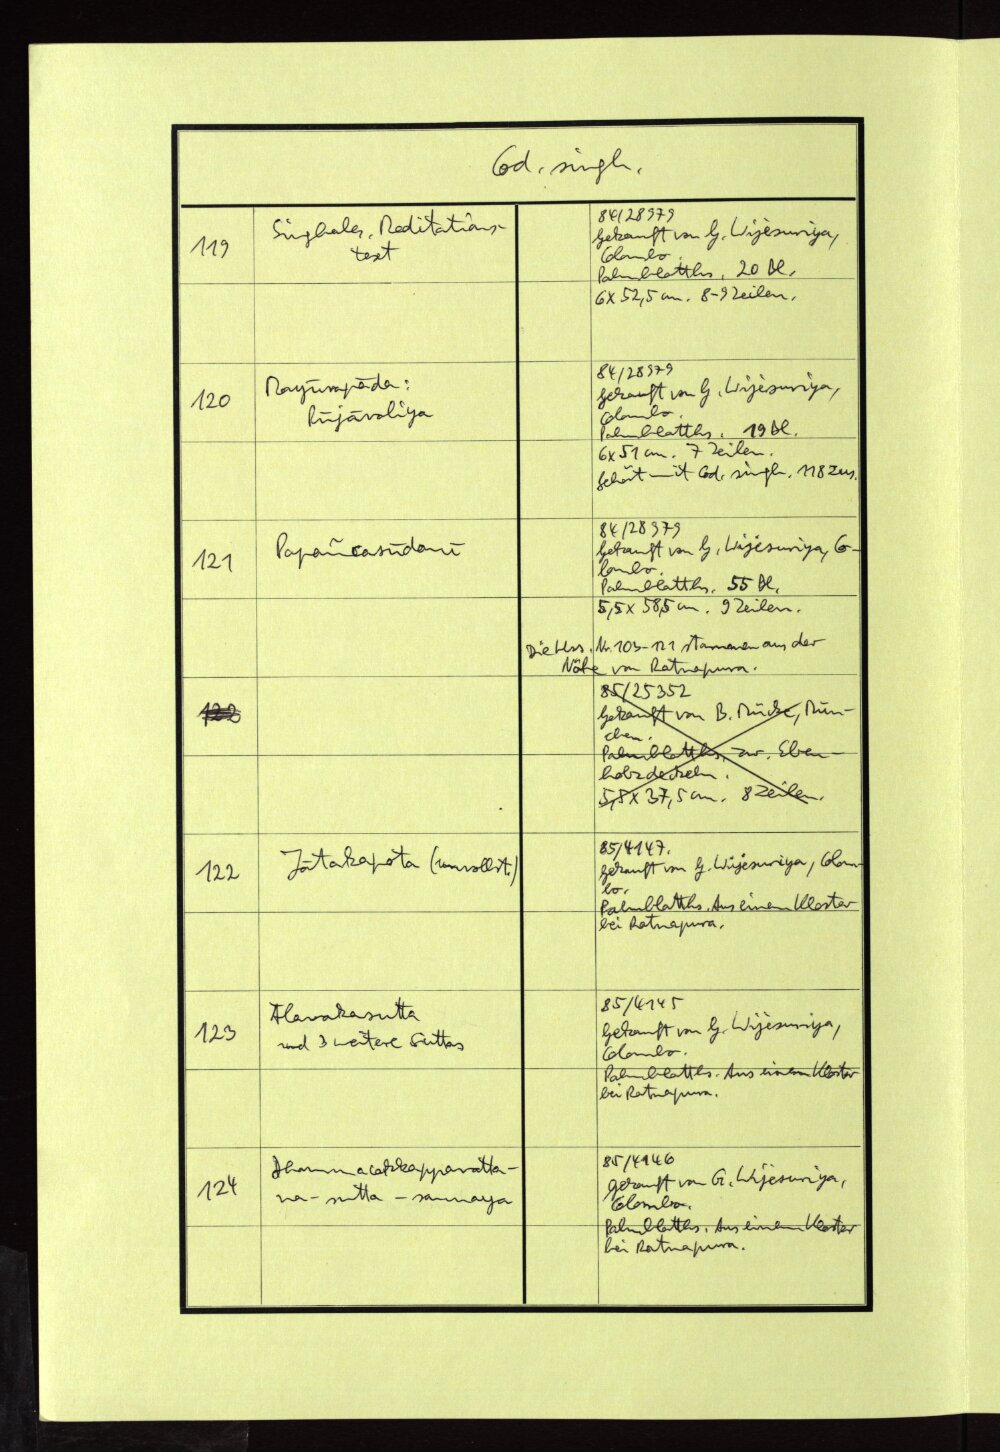 Cod. singh.
119
Singhales. Meditations-
text
84/28979
Gekauft von G. Wijèsuriya,
Colombo.
Palmblatths. 20 Bl.
6 x 52,5 cm. 8-9 Zeilen.
120
Mayūrapāda:
Pūjāvaliya
84/28979
gekauft von G. Wijèsuriya,
Colombo.
Palmblatths. 19 Bl.
6 x 51 cm. 7 Zeilen.
Gehört mit Cod. singh. 118 zus.
121
Papañcasūdanī
84/28979
Gekauft von G. Wijèsuriya, Co-
lombo.
Palmblatths. 55 Bl.
5,5 x 58,5 cm. 9 Zeilen.
Die Hss. Nr. 103-121 stammen aus der
Nähe von Ratnapura.
122
85/25352
Gekauft von B. Mücke, Mün-
chen.
Palmblatths. zw. Eben-
holzdeckeln.
5,8 x 37,5 cm. 8 Zeilen.
122
Jātakapota (unvollst.)
85/4147.
gekauft von G. Wijèsuriya, Colom-
bo.
Palmblatths. Aus einem Kloster
bei Ratnapura.
123
Alavakasutta
und 3 weitere Suttas
85/4145
Gekauft von G. Wijèsuriya,
Colombo.
Palmblatths. Aus einem Kloster
bei Ratnapura.
124
Dhammacakkappavatta-
na-sutta-sannaya
85/4146
gekauft von G. Wijèsuriya,
Colombo.
Palmblatths. Aus einem Kloster
bei Ratnapura.